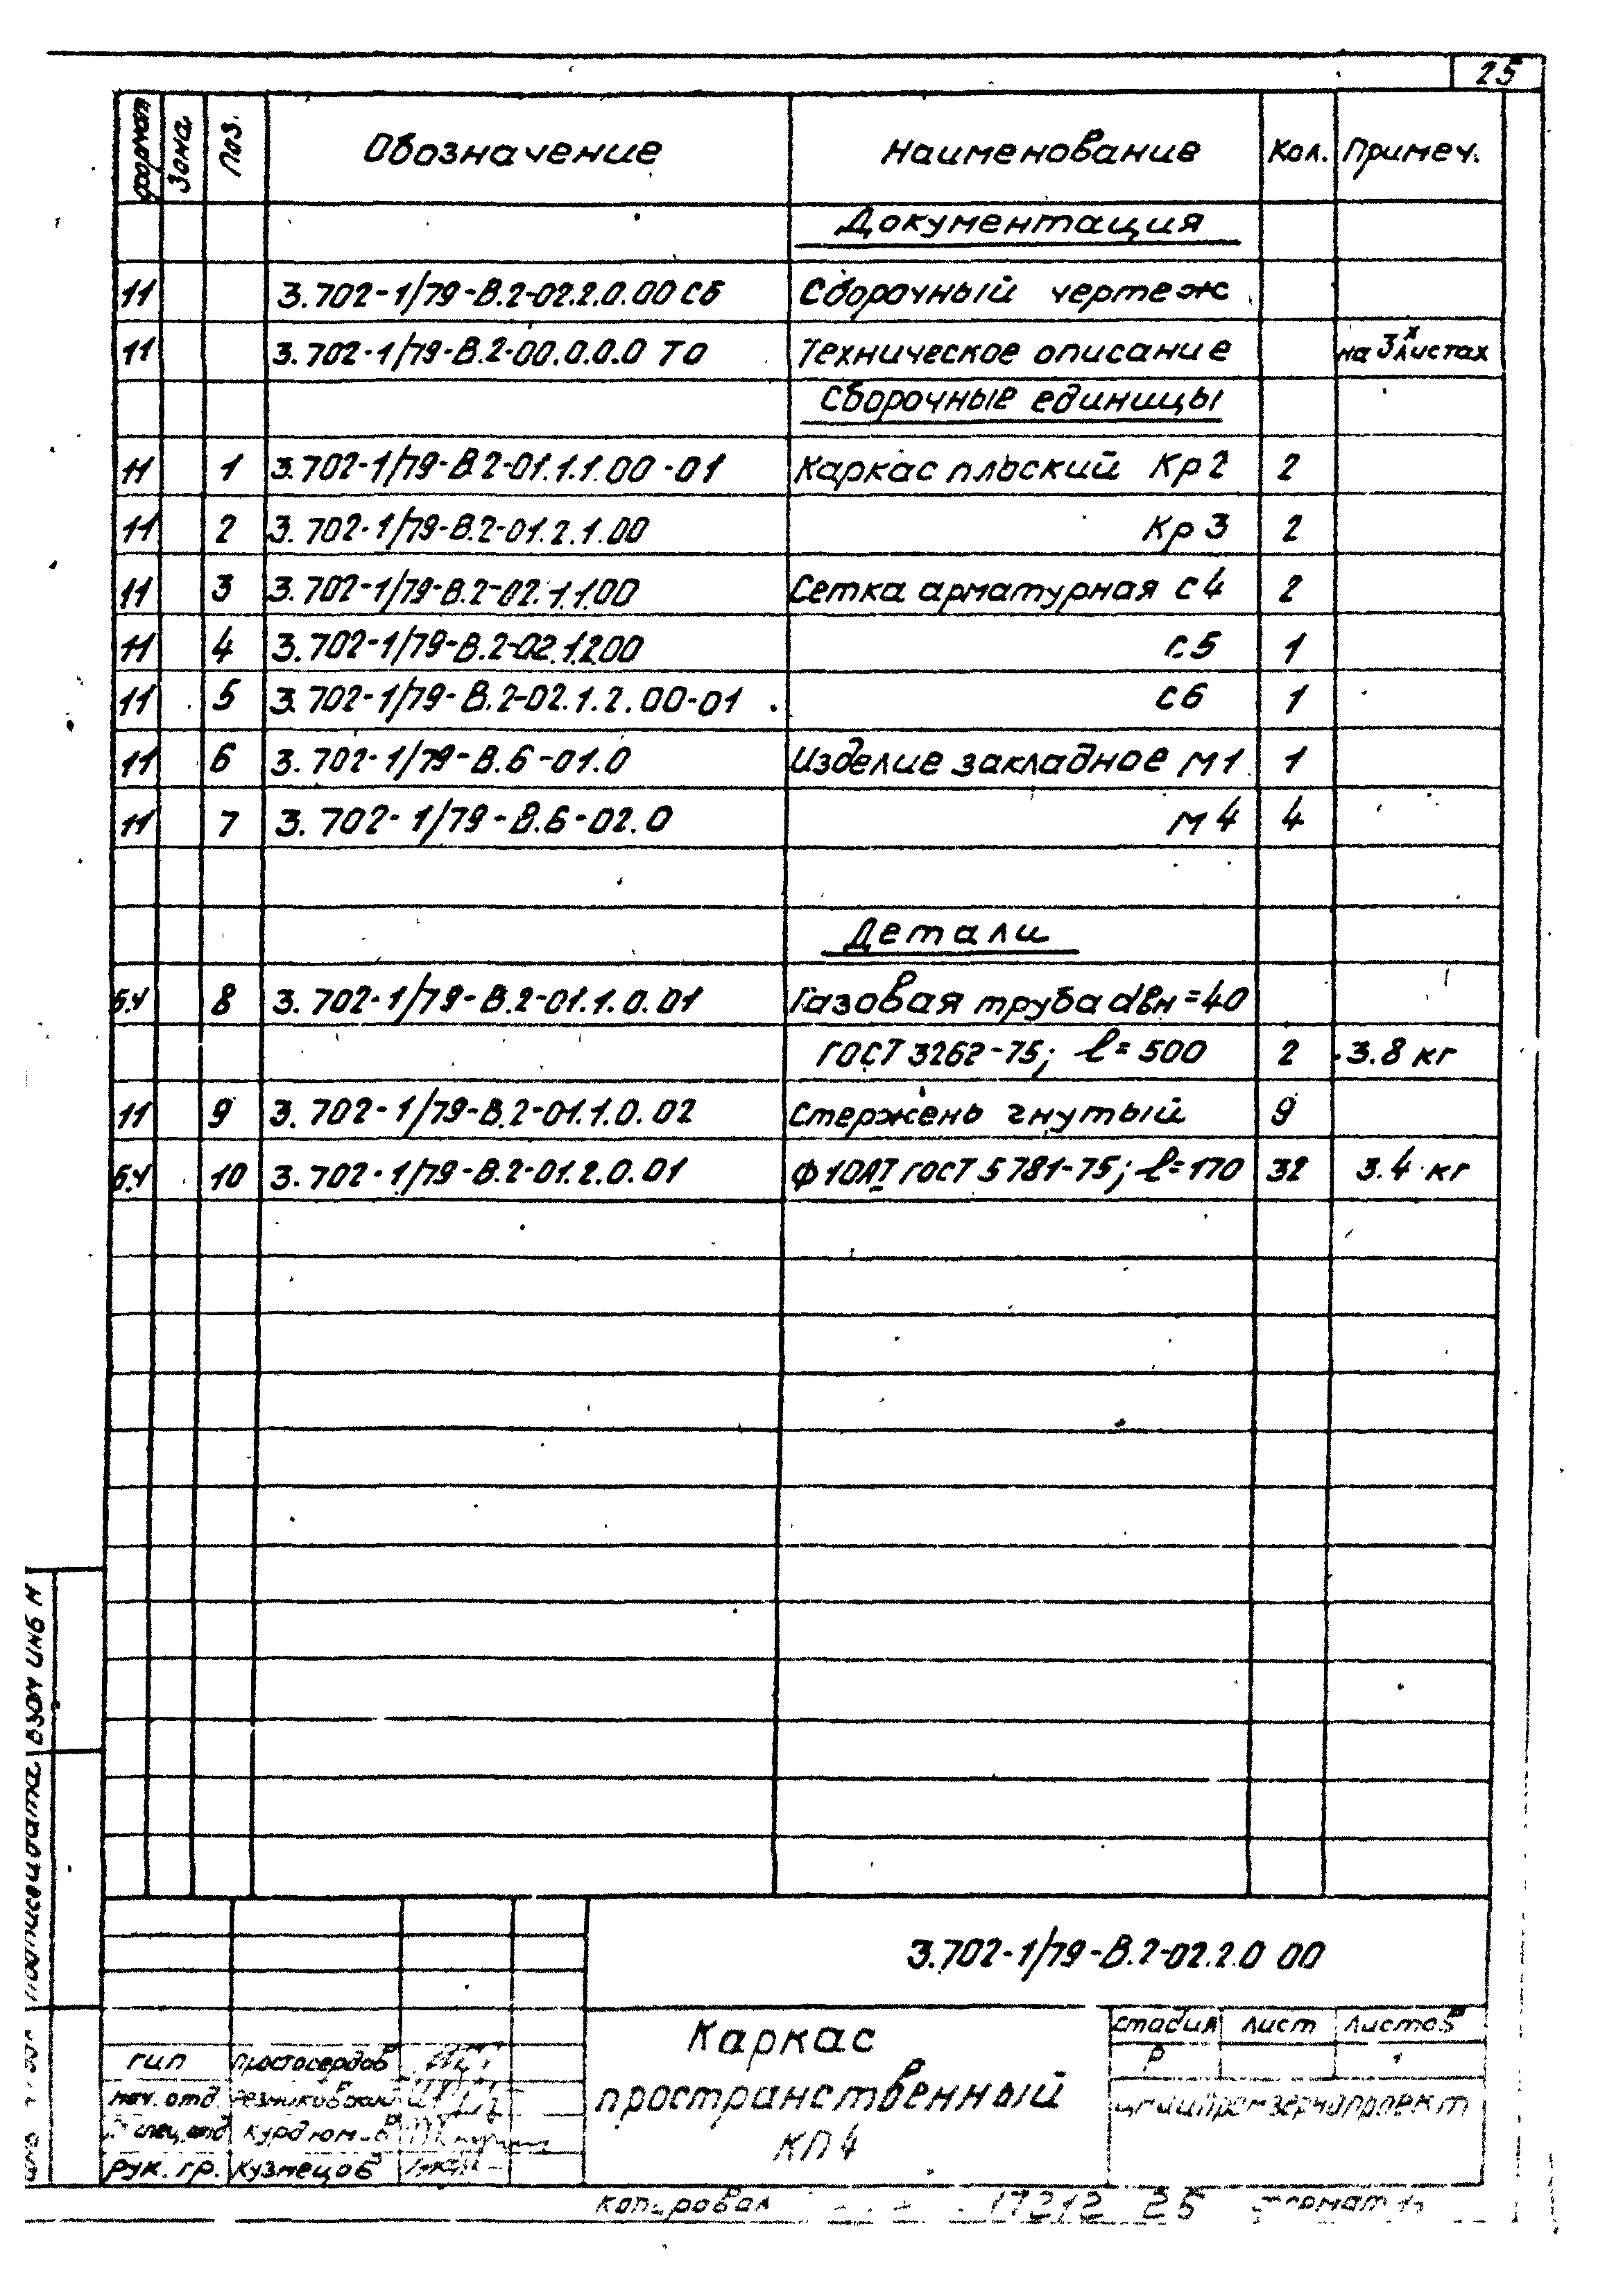 25
Формат Зона Поз. Обозначение Наименование Кол. Примеч.
Документация
11 3.702-1/79-В.2-02.2.0.00 СБ Сборочный чертеж
11 3.702-1/79-В.2-00.0.0.0 ТО Техническое описание на 3х листах
Сборочные единицы
11 1 3.702-1/79-В.2-01.1.1.00-01 Каркас плоский Кр2 2
11 2 3.702-1/79-В.2-01.2.1.00 Кр3 2
11 3 3.702-1/79-В.2-02.1.1.00 Сетка арматурная С4 2
11 4 3.702-1/79-В.2-02.1.2.00 С5 1
11 5 3.702-1/79-В.2-02.1.2.00-01 С6 1
11 6 3.702-1/79-В.6-01.0 Изделие закладное М1 1
11 7 3.702-1/79-В.6-02.0 М4 4
Детали
б.ч 8 3.702-1/79-В.2-01.1.0.01 Газовая труба dвн=40
ГОСТ 3262-75; ℓ=500 2 3.8 кг
11 9 3.702-1/79-В.2-01.1.0.02 Стержень гнутый 9
б.ч 10 3.702-1/79-В.2-01.2.0.01 Ф10АI ГОСТ 5781-75; ℓ=170 32 3.4 кг
Взам инв N
Подпись и дата
3.702-1/79-В.2-02.2.0 00
Каркас
пространственный
КП4
Стадия Лист Листов
Р
ЦНИИПромзернопроект
ГИП Простосердов
Нач. отд. Резниковский
спец. отд
Рук. гр. Кузнецов
Копировал 17212 25 Формат